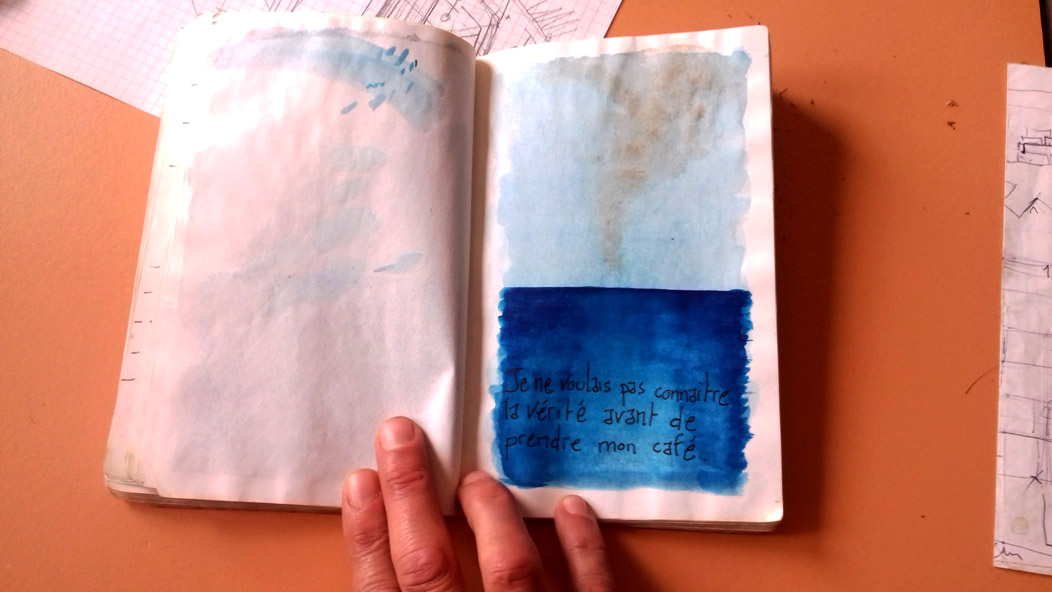 Je ne voulais pas connaitre
la vérité avant de
prendre mon café.